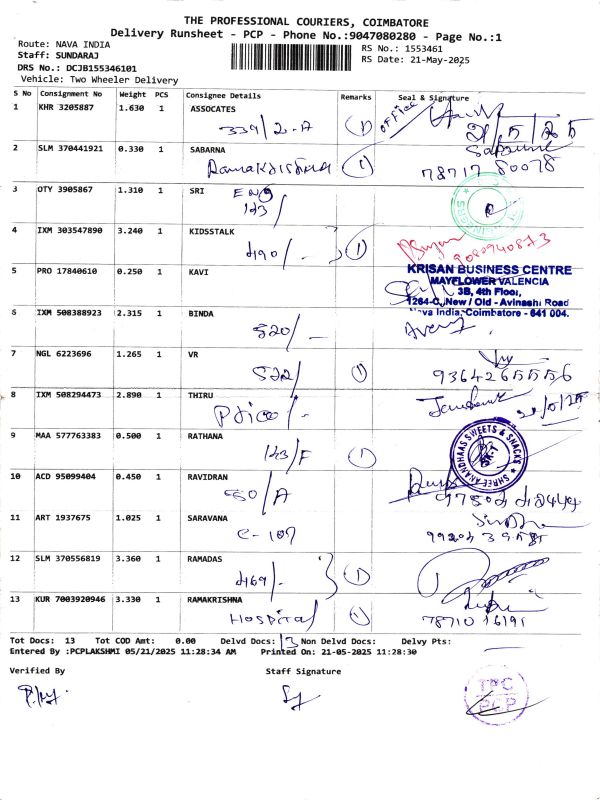 THE PROFESSIONAL COURIERS, COIMBATORE
Delivery Runsheet - PCP - Phone No.:9047080280 - Page No.:1
Route: NAVA INDIA
Staff: SUNDARAJ
DRS No.: DCJB155346101
Vehicle: Two Wheeler Delivery
RS No.: 1553461
RS Date: 21-May-2025
S No Consignment No Weight PCS Consignee Details Remarks Seal & Signature
1 KHR 3205887 1.630 1 ASSOCATES
339/2-A 1 office
21/5/25
2 SLM 370441921 0.330 1 SABARNA
Ramakrishna 1 78717 80078
3 OTY 3905867 1.310 1 SRI
ENG
123/
4 IXM 303547890 3.240 1 KIDSSTALK
490/- 1 9080940873
5 PRO 17840610 0.250 1 KAVI
KRISAN BUSINESS CENTRE
MAYFLOWER VALENCIA
3B, 4th Floor,
1264-C, New / Old - Avinashi Road
Nava India, Coimbatore - 641 004.
6 IXM 508388923 2.315 1 BINDA
520/-
7 NGL 6223696 1.265 1 VR
522/ 1 9364265556
8 IXM 508294473 2.890 1 THIRU
Price/-
9 MAA 577763383 0.500 1 RATHANA
123/F 1
SHREE ANANDHAAS SWEETS & SNACKS
10 ACD 95099404 0.450 1 RAVIDRAN
50/A
11 ART 1937675 1.025 1 SARAVANA
C-107
12 SLM 370556819 3.360 1 RAMADAS
469/- 1
13 KUR 7003920946 3.330 1 RAMAKRISHNA
Hospital 1 78710 16191
Tot Docs: 13 Tot COD Amt: 0.00 Delvd Docs: 13 Non Delvd Docs: Delvy Pts:
Entered By :PCPLAKSHMI 05/21/2025 11:28:34 AM Printed On: 21-05-2025 11:28:30
Verified By Staff Signature
TPC
PCP